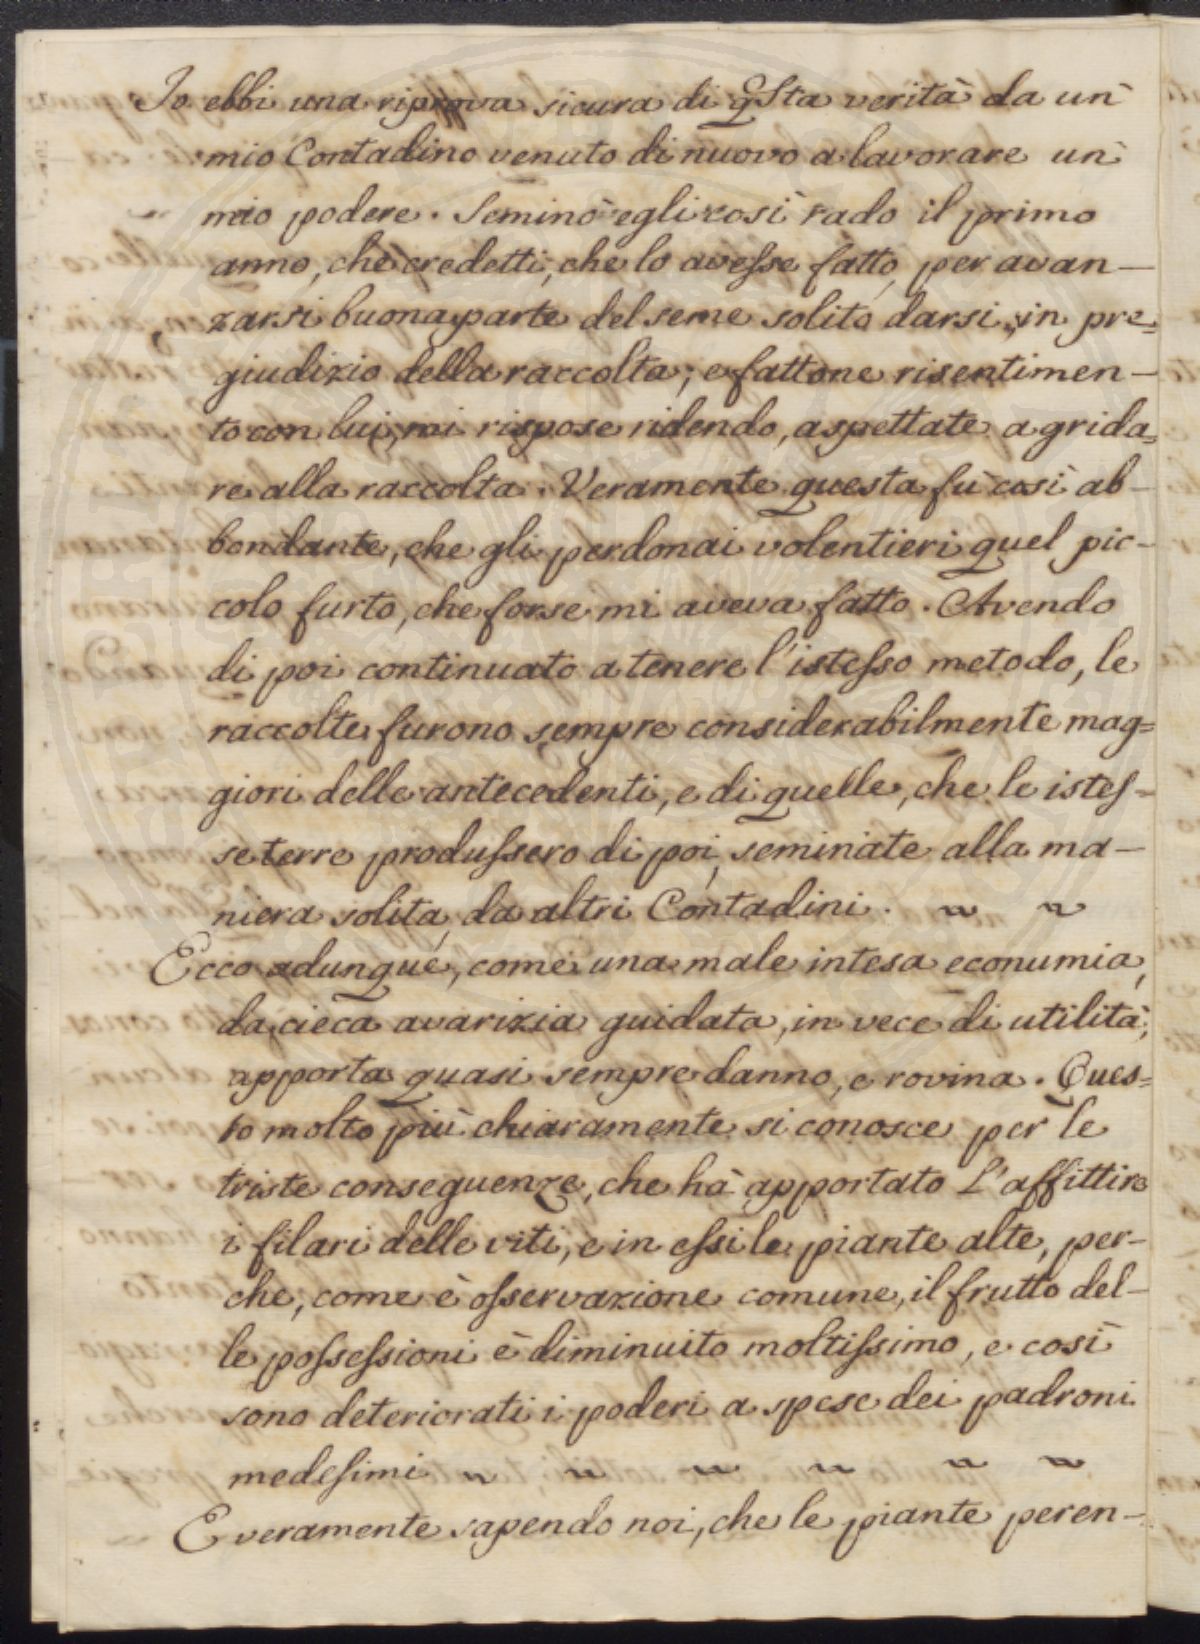 Io ebbi una riprova sicura di qSta verità da un
mio Contadino venuto di nuovo a lavorare un
mio podere. Seminò egli così rado il primo
anno, che credetti, che lo avesse fatto, per avan-
zarsi buona parte del seme solito darsi, in pre=
giudizio della raccolta; e fattone risentimen-
to con lui, mi rispose ridendo, aspettate a grida=
re alla raccolta. Veramente questa fù così ab-
bondante, che gli perdonai volentieri quel pic-
colo furto, che forse mi aveva fatto. Avendo
di poi continuato a tenere l'istesso metodo, le
raccolte furono sempre considerabilmente mag=
giori delle antecedenti, e di quelle, che le istes-
se terre produssero di poi, seminate alla ma-
niera solita, da altri Contadini.
Ecco adunque, come una male intesa econumia,
da cieca avarizia guidata, in vece di utilità,
apporta quasi sempre danno, e rovina. Ques=
to molto più chiaramente si conosce per le
triste conseguenze, che hà apportato L'affittire
i filari delle viti, e in essi le piante alte, per-
che, come è osservazione comune, il frutto del-
le possessioni è diminuito moltissimo, e così
sono deteriorati i poderi a spese dei padroni
medesimi
E veramente sapendo noi, che le piante peren-